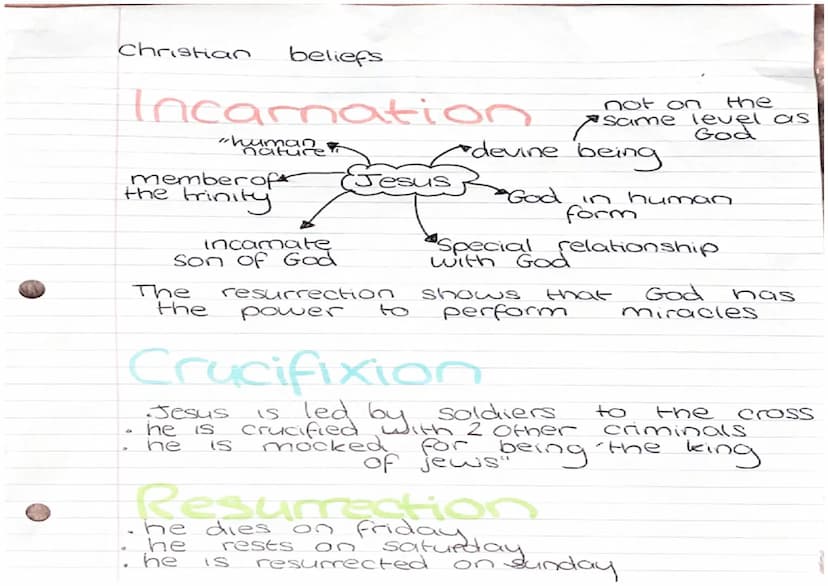 Christian beliefs
Incarnation
not on the
same level as
God
"human
nature"
devine being
Jesus
member of
the trinity
God in human
form
incarnate
son of God
Special relationship
with God
The resurrection shows that God has
the power to perform miracles
Crucifixion
.Jesus is led by soldiers to the cross
. he is crucified with 2 other criminals
. he is mocked for being "the king
of jews"
Resurrection
. he dies on friday
. he rests on saturday
. he is resurrected on sunday